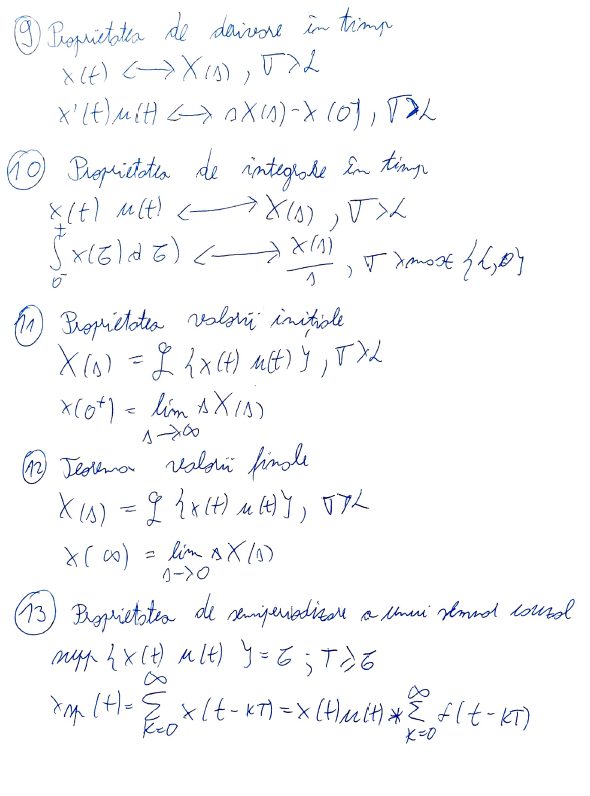 9 Proprietatea de derivare în timp
x(t) <-> X(s), σ>L
x'(t)u(t) <-> sX(s)-x(0⁻), σ>L
10 Proprietatea de integrare în timp
x(t) u(t) <-> X(s), σ>L
∫_{0⁻}^{t} x(τ)dτ) <-> X(s)/s, σ>max{L,0}
11 Proprietatea valorii inițiale
X(s) = ℒ{x(t) u(t)}, σ>L
x(0⁺) = lim_{s->∞} sX(s)
12 Teorema valorii finale
X(s) = ℒ{x(t) u(t)}, σ>L
x(∞) = lim_{s->0} sX(s)
13 Proprietatea de semiperiodizare a unui semnal cauzal
supp{x(t) u(t)}=τ; T⩾τ
x_sp(t)=∑_{k=0}^{∞} x(t-kT)=x(t)u(t)*∑_{k=0}^{∞} δ(t-kT)